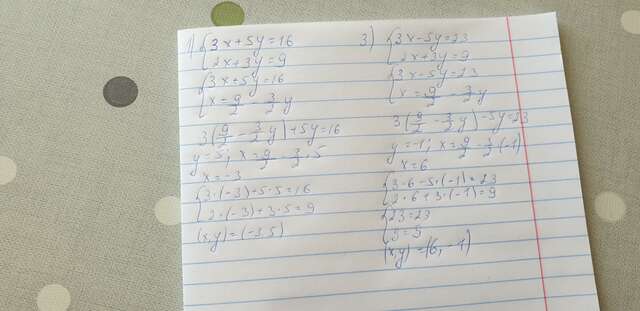 1) {3x+5y=16
{2x+3y=9
{3x+5y=16
{x=9/2-3/2y
3(9/2-3/2y)+5y=16
y=5; x=9/2-3/2·5
x=-3
{3·(-3)+5·5=16
{2·(-3)+3·5=9
(x,y)=(-3,5)
3) {3x-5y=23
{2x+3y=9
{3x-5y=23
{x=9/2-3/2y
3(9/2-3/2y)-5y=23
y=-1; x=9/2-3/2·(-1)
x=6
{3·6-5·(-1)=23
{2·6+3·(-1)=9
{23=23
{9=9
(x,y)=(6,-1)